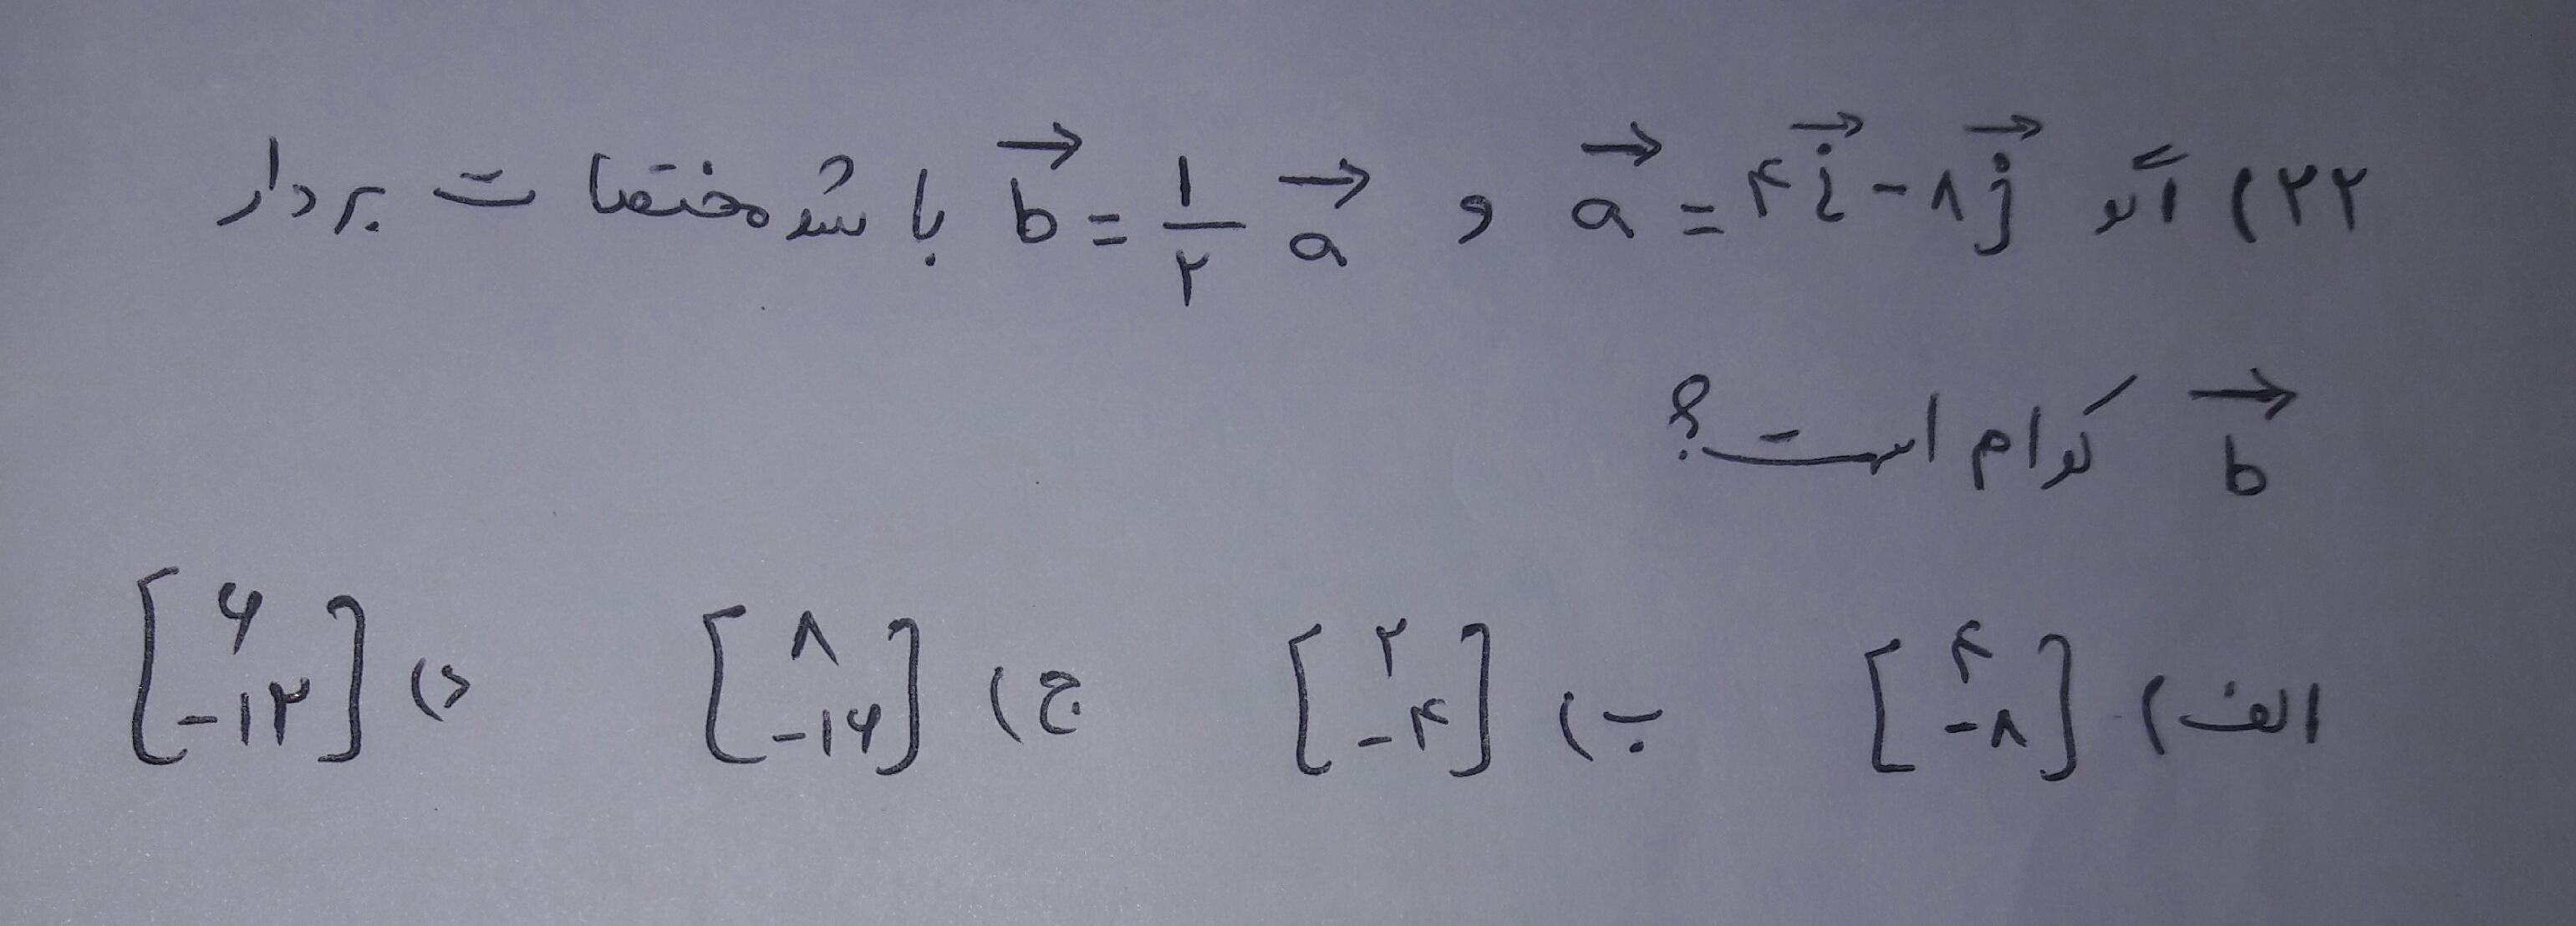 ۲۲) اگر a⃗ = ۴i⃗ - ۸j⃗ و b⃗ = ۱/۲ a⃗ باشد مختصات بردار
b⃗ کدام است؟
الف) [۴ -۸] ب) [۲ -۴] ج) [۸ -۱۶] د) [۶ -۱۲]